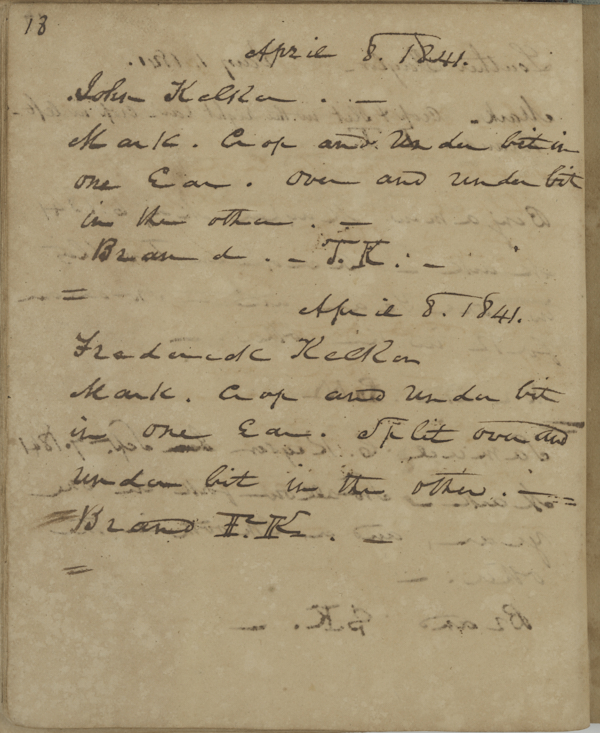 18
April 8. 1841.
John Kelker. —
Mark. Crop and Under bit in
one Ear. Over and under bit
in the other. —
Brand. - J. K. -
=
April 8. 1841.
Frederick Kelker
Mark. Crop and Under bit
in one Ear. Split over and
under bit in the other. — =
= Brand F. K. —
=